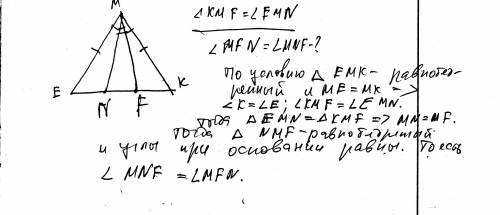 M
∠KMF = ∠EMN
∠MFN = ∠MNF - ?
E N F K
По условию △ EMK - равнобед-
ренный и ME = MK =>
∠K = ∠E; ∠KMF = ∠EMN.
Тогда △EMN = △KMF => MN = MF.
Тогда △ NMF - равнобедренный
и углы при основании равны. То есть
∠MNF = ∠MFN.